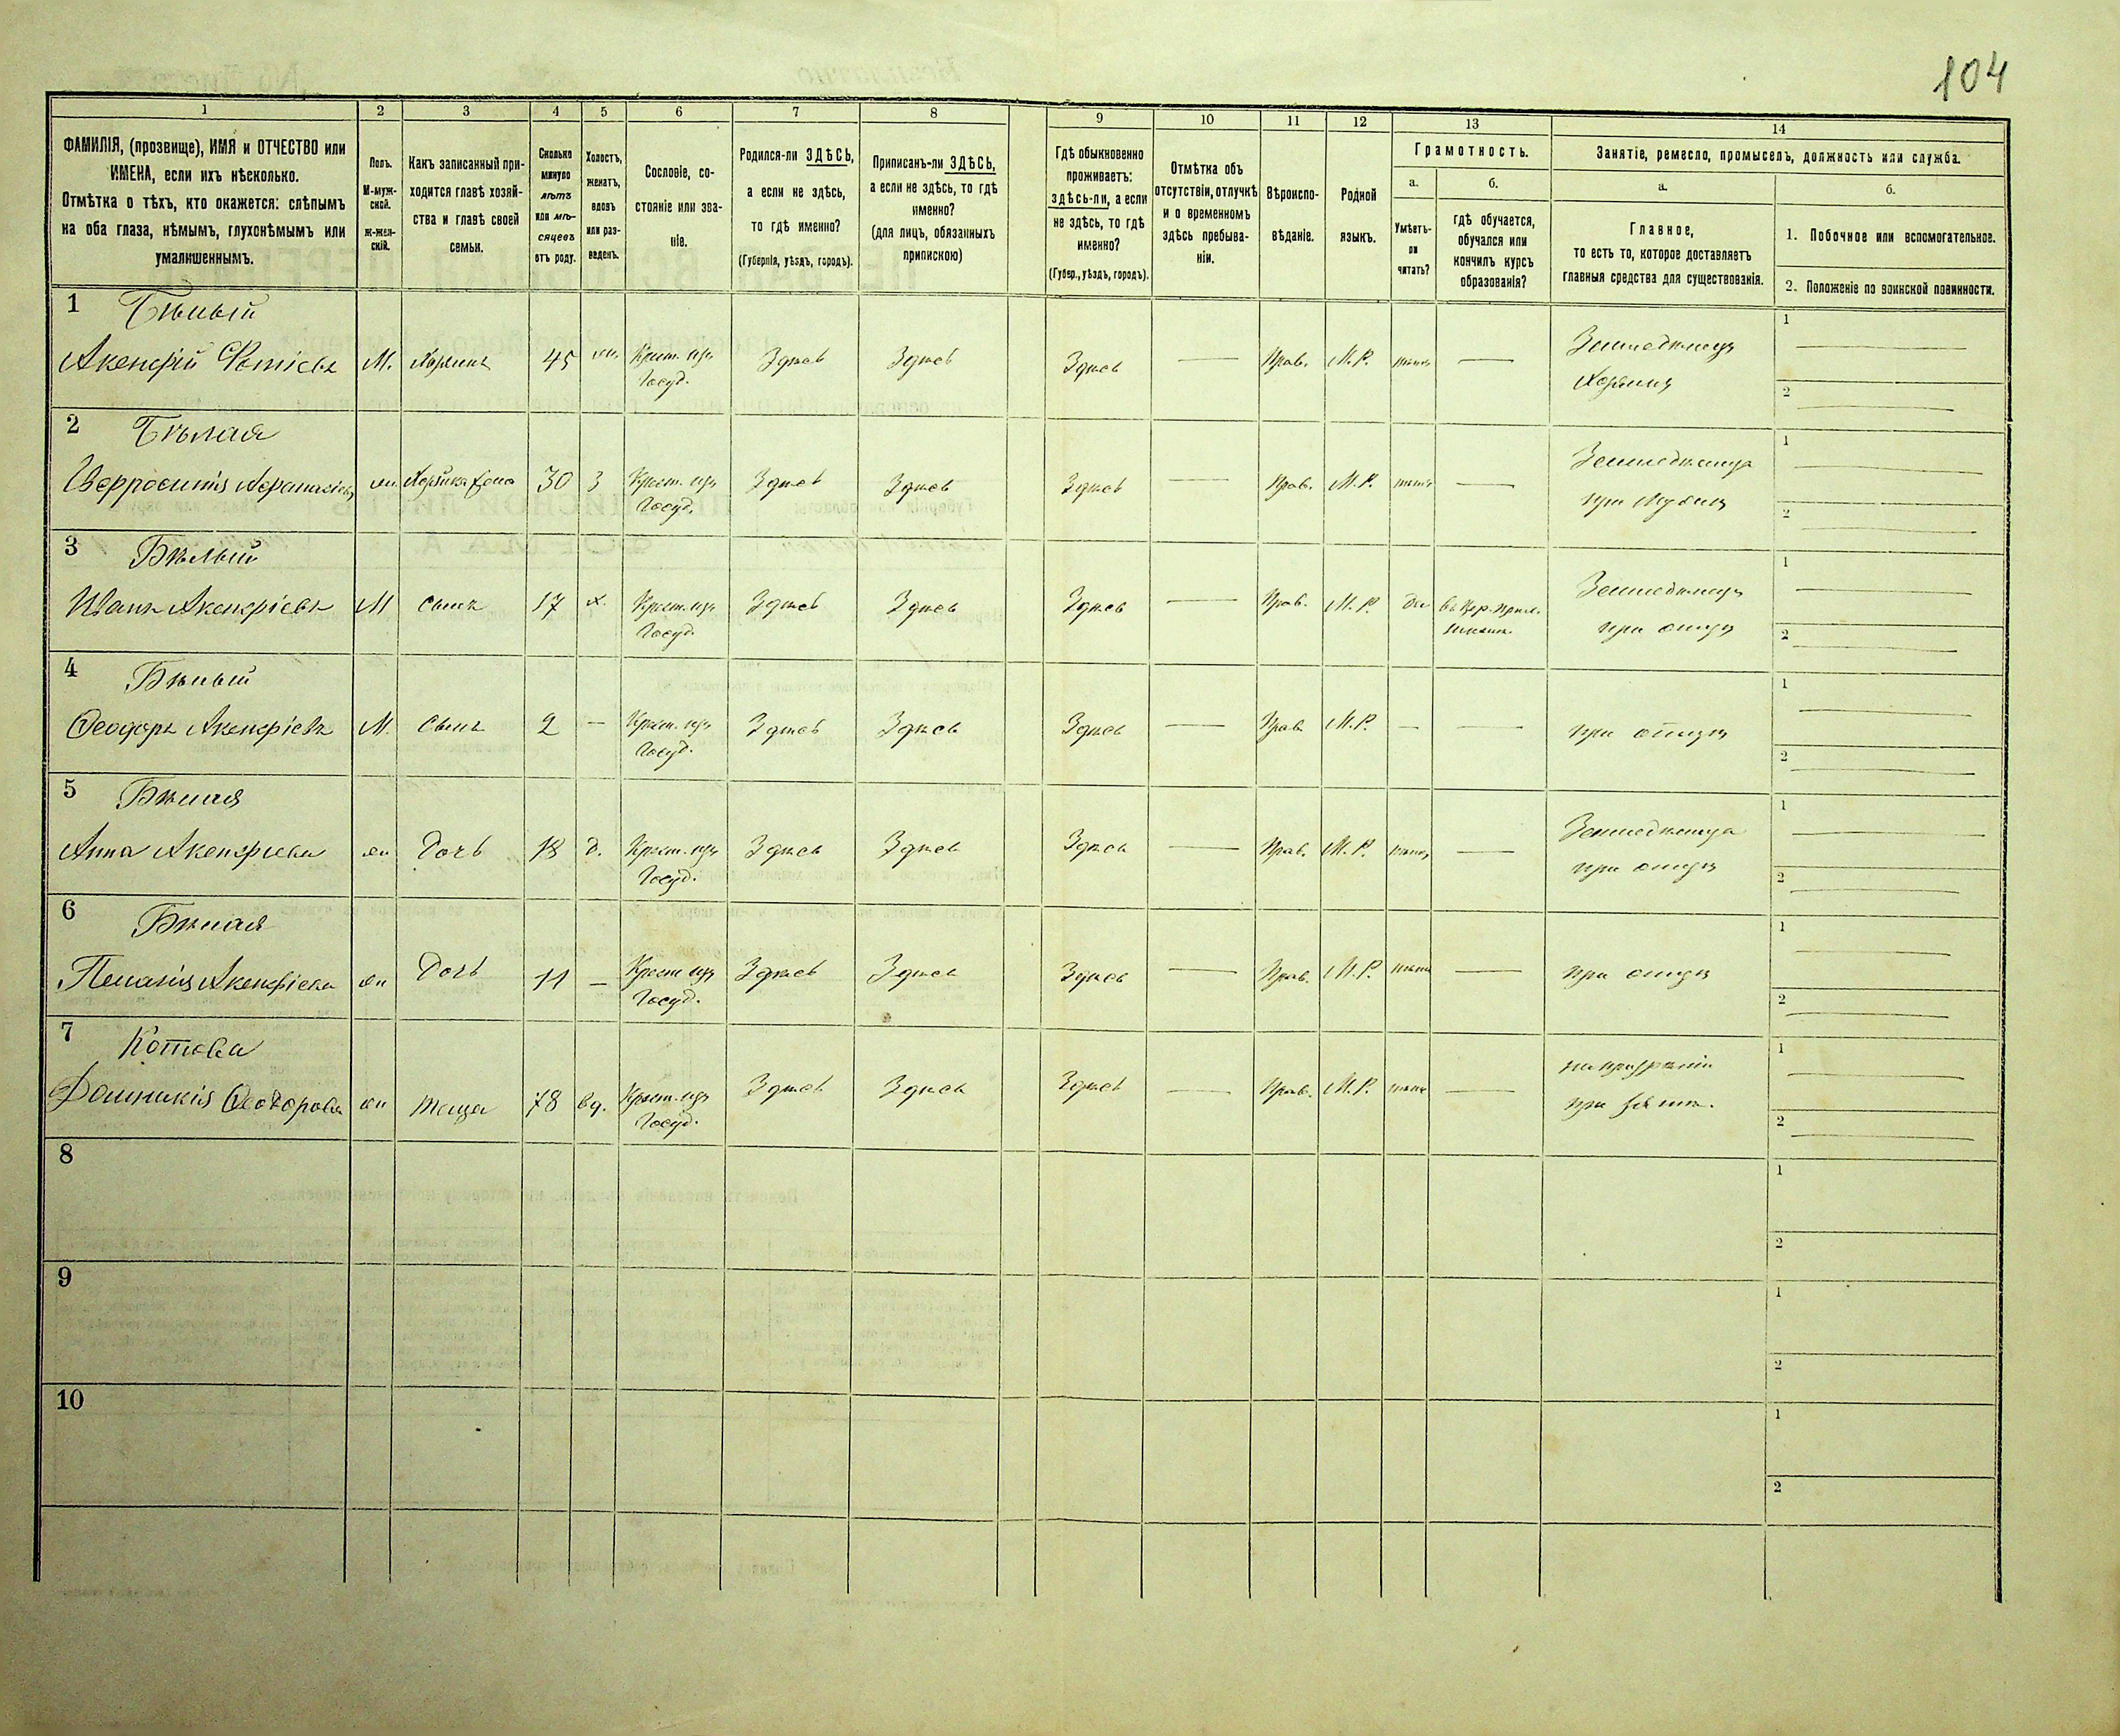 104
1 2 3 4 5 6 7 8 9 10 11 12 13 14
ФАМИЛІЯ, (прозвище), ИМЯ и ОТЧЕСТВО или
ИМЕНА, если ихъ нѣсколько.
Отмѣтка о тѣхъ, кто окажется: слѣпымъ
на оба глаза, нѣмымъ, глухонѣмымъ или
умалишеннымъ.
Полъ.
М-муж-
ской.
Ж-жен-
скій.
Какъ записанный при-
ходится главѣ хозяй-
ства и главѣ своей
семьи.
Сколько
минуло
лѣтъ
или мѣ-
сяцевъ
отъ роду.
Холостъ,
женатъ,
вдовъ
или раз-
веденъ.
Сословіе, со-
стояніе или зва-
ніе.
Родился-ли ЗДѢСЬ,
а если не здѣсь,
то гдѣ именно?
(Губернія, уѣздъ, городъ).
Приписанъ-ли ЗДѢСЬ,
а если не здѣсь, то гдѣ
именно?
(для лицъ, обязанныхъ
припискою)
Гдѣ обыкновенно
проживаетъ:
здѣсь-ли, а если
не здѣсь, то гдѣ
именно?
(Губер., уѣздъ, городъ).
Отмѣтка объ
отсутствіи, отлучкѣ
и о временномъ
здѣсь пребыва-
ніи.
Вѣроиспо-
вѣданіе.
Родной
языкъ.
Грамотность.
а.
Умѣетъ-
ли
читать?
б.
гдѣ обучается,
обучался или
кончилъ курсъ
образованія?
Занятіе, ремесло, промыселъ, должность или служба.
а.
Главное,
то есть то, которое доставляетъ
главныя средства для существованія.
б.
1. Побочное или вспомогательное.
2. Положеніе по воинской повинности.
1 Бѣлый
Акенфій Фотіевъ М. Хозяинъ 45 Крест. изъ Здѣсь Здѣсь Здѣсь — Прав. М.Р. нѣтъ — Земледѣлецъ 1 —
Госуд. Хозяинъ 2 —
2 Бѣлая
Хозяина жена 30 З Крест. изъ Здѣсь Здѣсь Здѣсь — Прав. М.Р. нѣтъ — Земледѣлица 1 —
Госуд. при мужѣ 2 —
3 Бѣлый
Иванъ Акенфіевъ М сынъ 17 х. Крест. изъ Здѣсь Здѣсь Здѣсь — Прав. М.Р. да Земледѣлецъ 1 —
Госуд. при отцѣ 2 —
4 Бѣлый
Ѳеодоръ Акенфіевъ М. Сынъ 2 — Крест. изъ Здѣсь Здѣсь Здѣсь — Прав. М.Р. — — при отцѣ 1 —
Госуд. 2 —
5 Бѣлая
Анна Акенфіева ж Дочь д. Крест. изъ Здѣсь Здѣсь Здѣсь — Прав. М.Р. нѣтъ — Земледѣлица 1 —
Госуд. при отцѣ 2 —
6 Бѣлая
Пелагія Акенфіева ж Дочь 11 — Крест. изъ Здѣсь Здѣсь Здѣсь — Прав. М.Р. нѣтъ — при отцѣ 1 —
Госуд. 2 —
7 Котова
Домникія Ѳеодорова ж теща 78 вд. Крест. изъ Здѣсь Здѣсь Здѣсь — Прав. М.Р. нѣтъ — на призрѣніи 1 —
Госуд. при зятѣ. 2 —
8 1
2
9 1
2
10 1
2